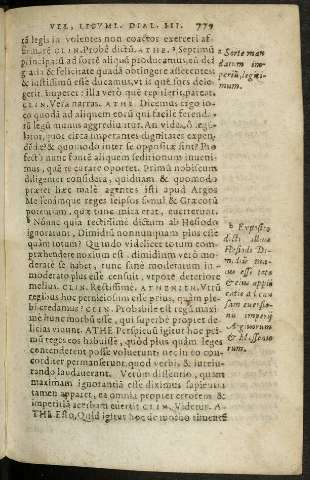 VEL LEGVML. DIAL. III. 779
tã legis in volentes non coactos exerceri af-
firmarẽ. CLIN. Probè dictũ. ATHE. Septimũ
principatũ ad sortẽ aliquã producamus, eũ dei
gratia & felicitate quadã obtingere asserentes,
& iustissimũ esse ducamus, vt is què sors dele-
gerit, imperet: illa verò què repulerit, pareat.
CLIN. Vera narras. ATHE. Dicemus ergo io-
co quodã ad aliquem eorũ qui facilè ferenda-
rũ legũ munus aggrediũtur. An vides, ô legis-
lator, quot circa imperantes dignitates expen-
dẽdæ? & quomodo inter se oppositæ sint? Pro
fectò nunc fontẽ aliquem seditionum inueni-
mus, quẽ te curare oportet. Primũ nobiscum
diligenter considera, quidnam & quomodo
præter hæc malè agentes isti apud Argos
Messenámque reges seipsos simul & Græcorũ
potentiam, quæ tunc mira erat, euerterunt.
Nũnne quia rectissimè dictum ab Hesiodo
ignorarunt, Dimidiũ nonnunquam plus esse
quàm totum? Quando videlicet totum com-
præhendere noxium est: dimidium verò mo-
deratè se habet, tunc sanè moderatum im-
moderato plus esse censuit, vtpote deteriore
melius. CLIN. Rectissimè. ATHENIEN. Vtrũ
regibus hoc perniciosum esse prius, quàm ple-
bi credamus? CLIN. Probabile est regũ maxi-
mè hunc morbũ esse, qui superbè propter de-
licias viuunt. ATHE Perspicuũ igitur hoc pri-
mũ reges eos habuisse, quòd plus quàm leges
contenderent posse voluerunt: nec in eo con-
corditer permanserunt, quod verbis & iureiu-
rando laudauerant. Verùm dissensio, quam
maximam ignorantiã esse diximus sapientia
tamen apparet, ea omnia propter errorem &
imperitiã acerbam euertit CLIN. Videtur. A-
THE Esto, Quid igitur hoc de modo tribuente
Sorte man
datum im-
periũ, legiti-
mum.
Expositio
dicti illius
Hesiodi Di-
m. diũ ma-
ius esse toto
& eius appli
catio ad cau
sam euersio-
nis imperij
Argiuorum
& Messenio
rum.